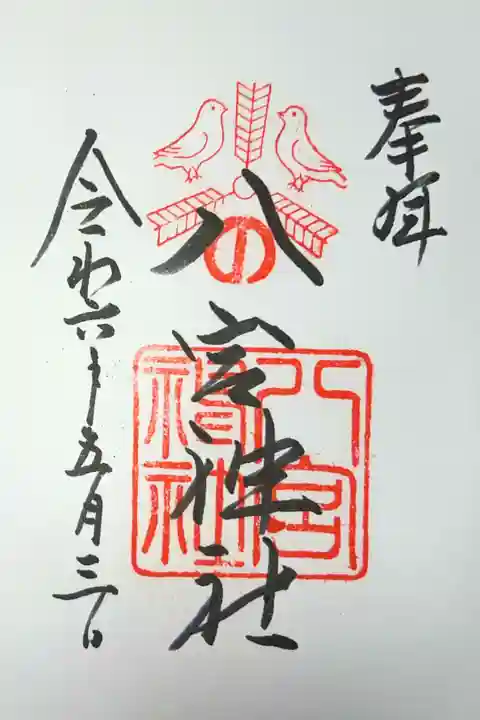 奉拝
八宮神社
の
八宮神社
令和六年五月三日